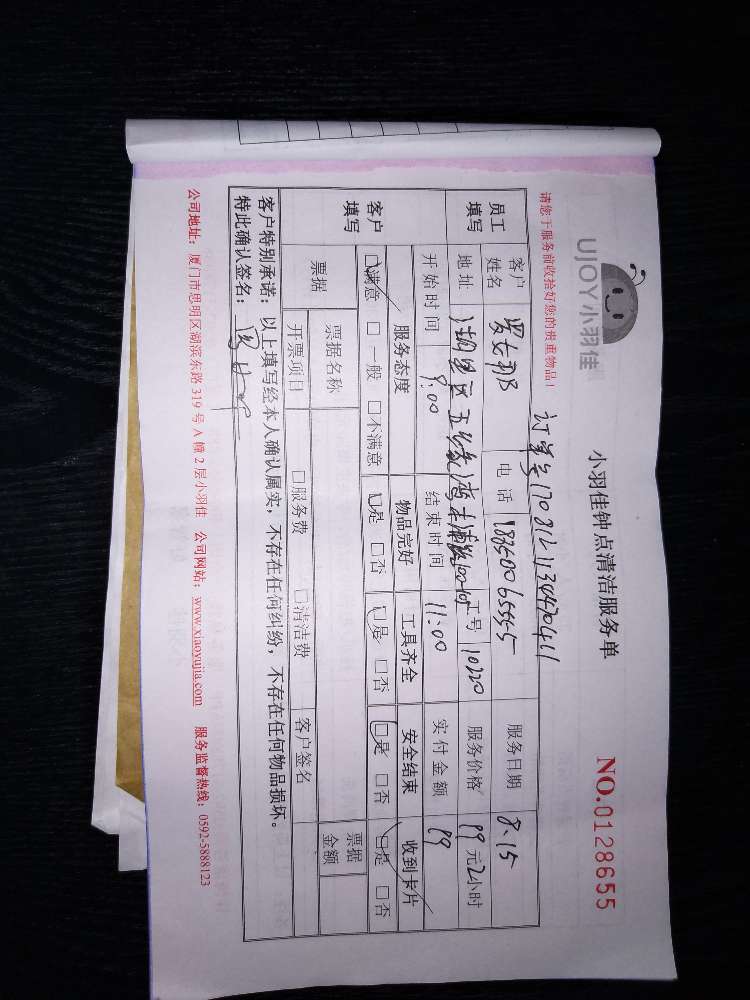 UJOY小羽佳
小羽佳钟点清洁服务单
NO.0128655
请您于服务前收拾好您的贵重物品！
订单号
员工填写
客户姓名 罗女士 电话 18350065555 服务日期 8.15
地址 湖里区五缘湾 工号 10220 服务价格 99元2小时
开始时间 9:00 结束时间 11:00 实付金额 99
客户填写
服务态度 物品完好 工具齐全 安全结束 收到卡片
□满意 □一般 □不满意 □是 □否 □是 □否 □是 □否 □是 □否
票据 票据名称 票据金额
开票项目 □服务费 □清洁费 客户签名
客户特别承诺：以上填写经本人确认属实，不存在任何纠纷，不存在任何物品损坏。
特此确认签名：
公司地址：厦门市思明区湖滨东路319号A幢2层小羽佳 公司网站：www.xiaoyujia.com 服务监督热线：0592-5888123